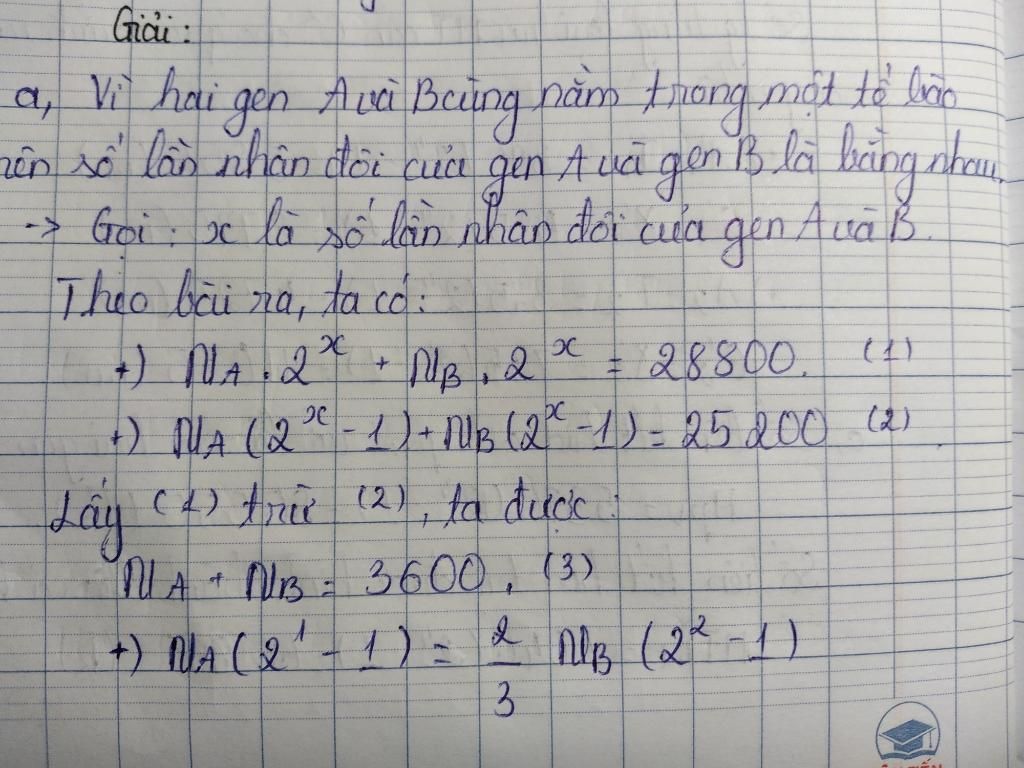 Giải:
a, Vì hai gen A và B cùng nằm trong một tế bào
nên số lần nhân đôi của gen A và gen B là bằng nhau.
-> Gọi: x là số lần nhân đôi của gen A và B.
Theo bài ra, ta có:
+) N_A . 2^x + N_B . 2^x = 28800. (1)
+) N_A (2^x - 1) + N_B (2^x - 1) = 25200 (2)
Lấy (1) trừ (2), ta được:
N_A + N_B = 3600. (3)
+) N_A (2^1 - 1) = 2/3 N_B (2^2 - 1)